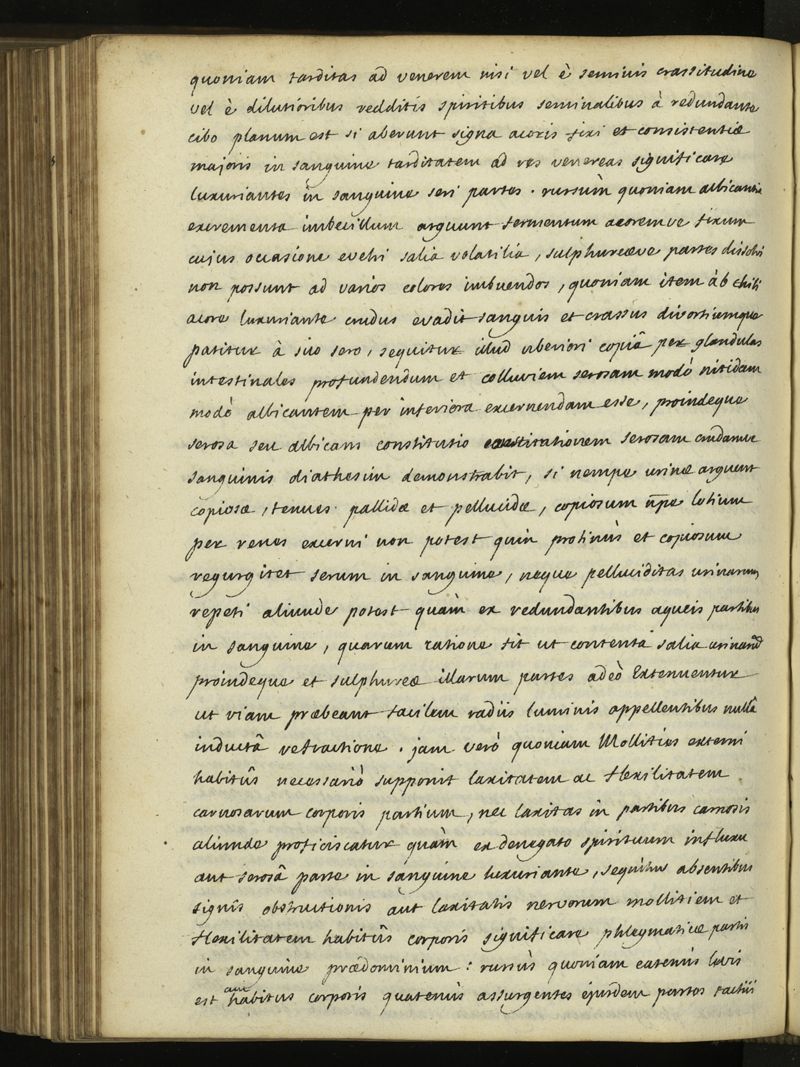 quoniam tarditas ad venerem nisi vel è seminis crassitudine
vel è dilutioribus redditis spiritibus seminalibus à redundante
cibo planum est si aberunt signa acoris fixi et consistentiæ
majoris in sanguine tarditatem ad res venereas significare
luxuriantes in sanguine seri partes. rursùm quoniam albicantia
excrementa imbecillum arguunt fermentum acoremve fixum
cujus occasione evehi salia volatilia, sulphureæve partes dissolvi
non possunt ad varios colores imbuendos, quoniam item àb chili
acore luxuriante crudus evadit sanguis et crassus divortiumque
patitur à suo sero, sequitur illud uberiori copiâ per glandulas
intestinales profundendum et colluviem serosam modò nitidam
modò albicantem per inferiora excernendam esse, proindeque
serosa seu albicans constitutio serosam crudamve
sanguinis diathesim demonstrabit, si nempe urinæ arguunt
copiosæ, tenues pallidæ et pellucidæ, copiosum ñpe lotium
per renes excerni non potest quin protinùs et copiosum
regurgitet serum in sanguine, neque pelluciditas urinarum
repeti aliunde potest quàm ex redundantibus aqueis partibus
in sanguine, quarum ratione fit ut contenta salia urinarũ
proindeque et sulphureæ illarum partes adeò Extenuentur
ut viam præbeant facilem radiis luminis appellentibus nullâ
inductâ refractione. jam verò quoniam Mollities externi
habitûs necessariò supponit laxitatem ac flexilitatem
carnosarum corporis partium, nec laxitas in partibus carnosis
aliunde proficiscatur quàm ex denegato spirituum influxu
aut serosâ parte in sanguine luxuriante, sequitur absentibus
signis obstructionis aut laxitatis nervorum mollitiem et
flexilitatem habitûs corporis significare phlegmaticæ partis
in sanguine prædominium: rursùs quoniam eatenùs lævis
est habitus corporis quatenùs assurgentes ejusdem partes tactui